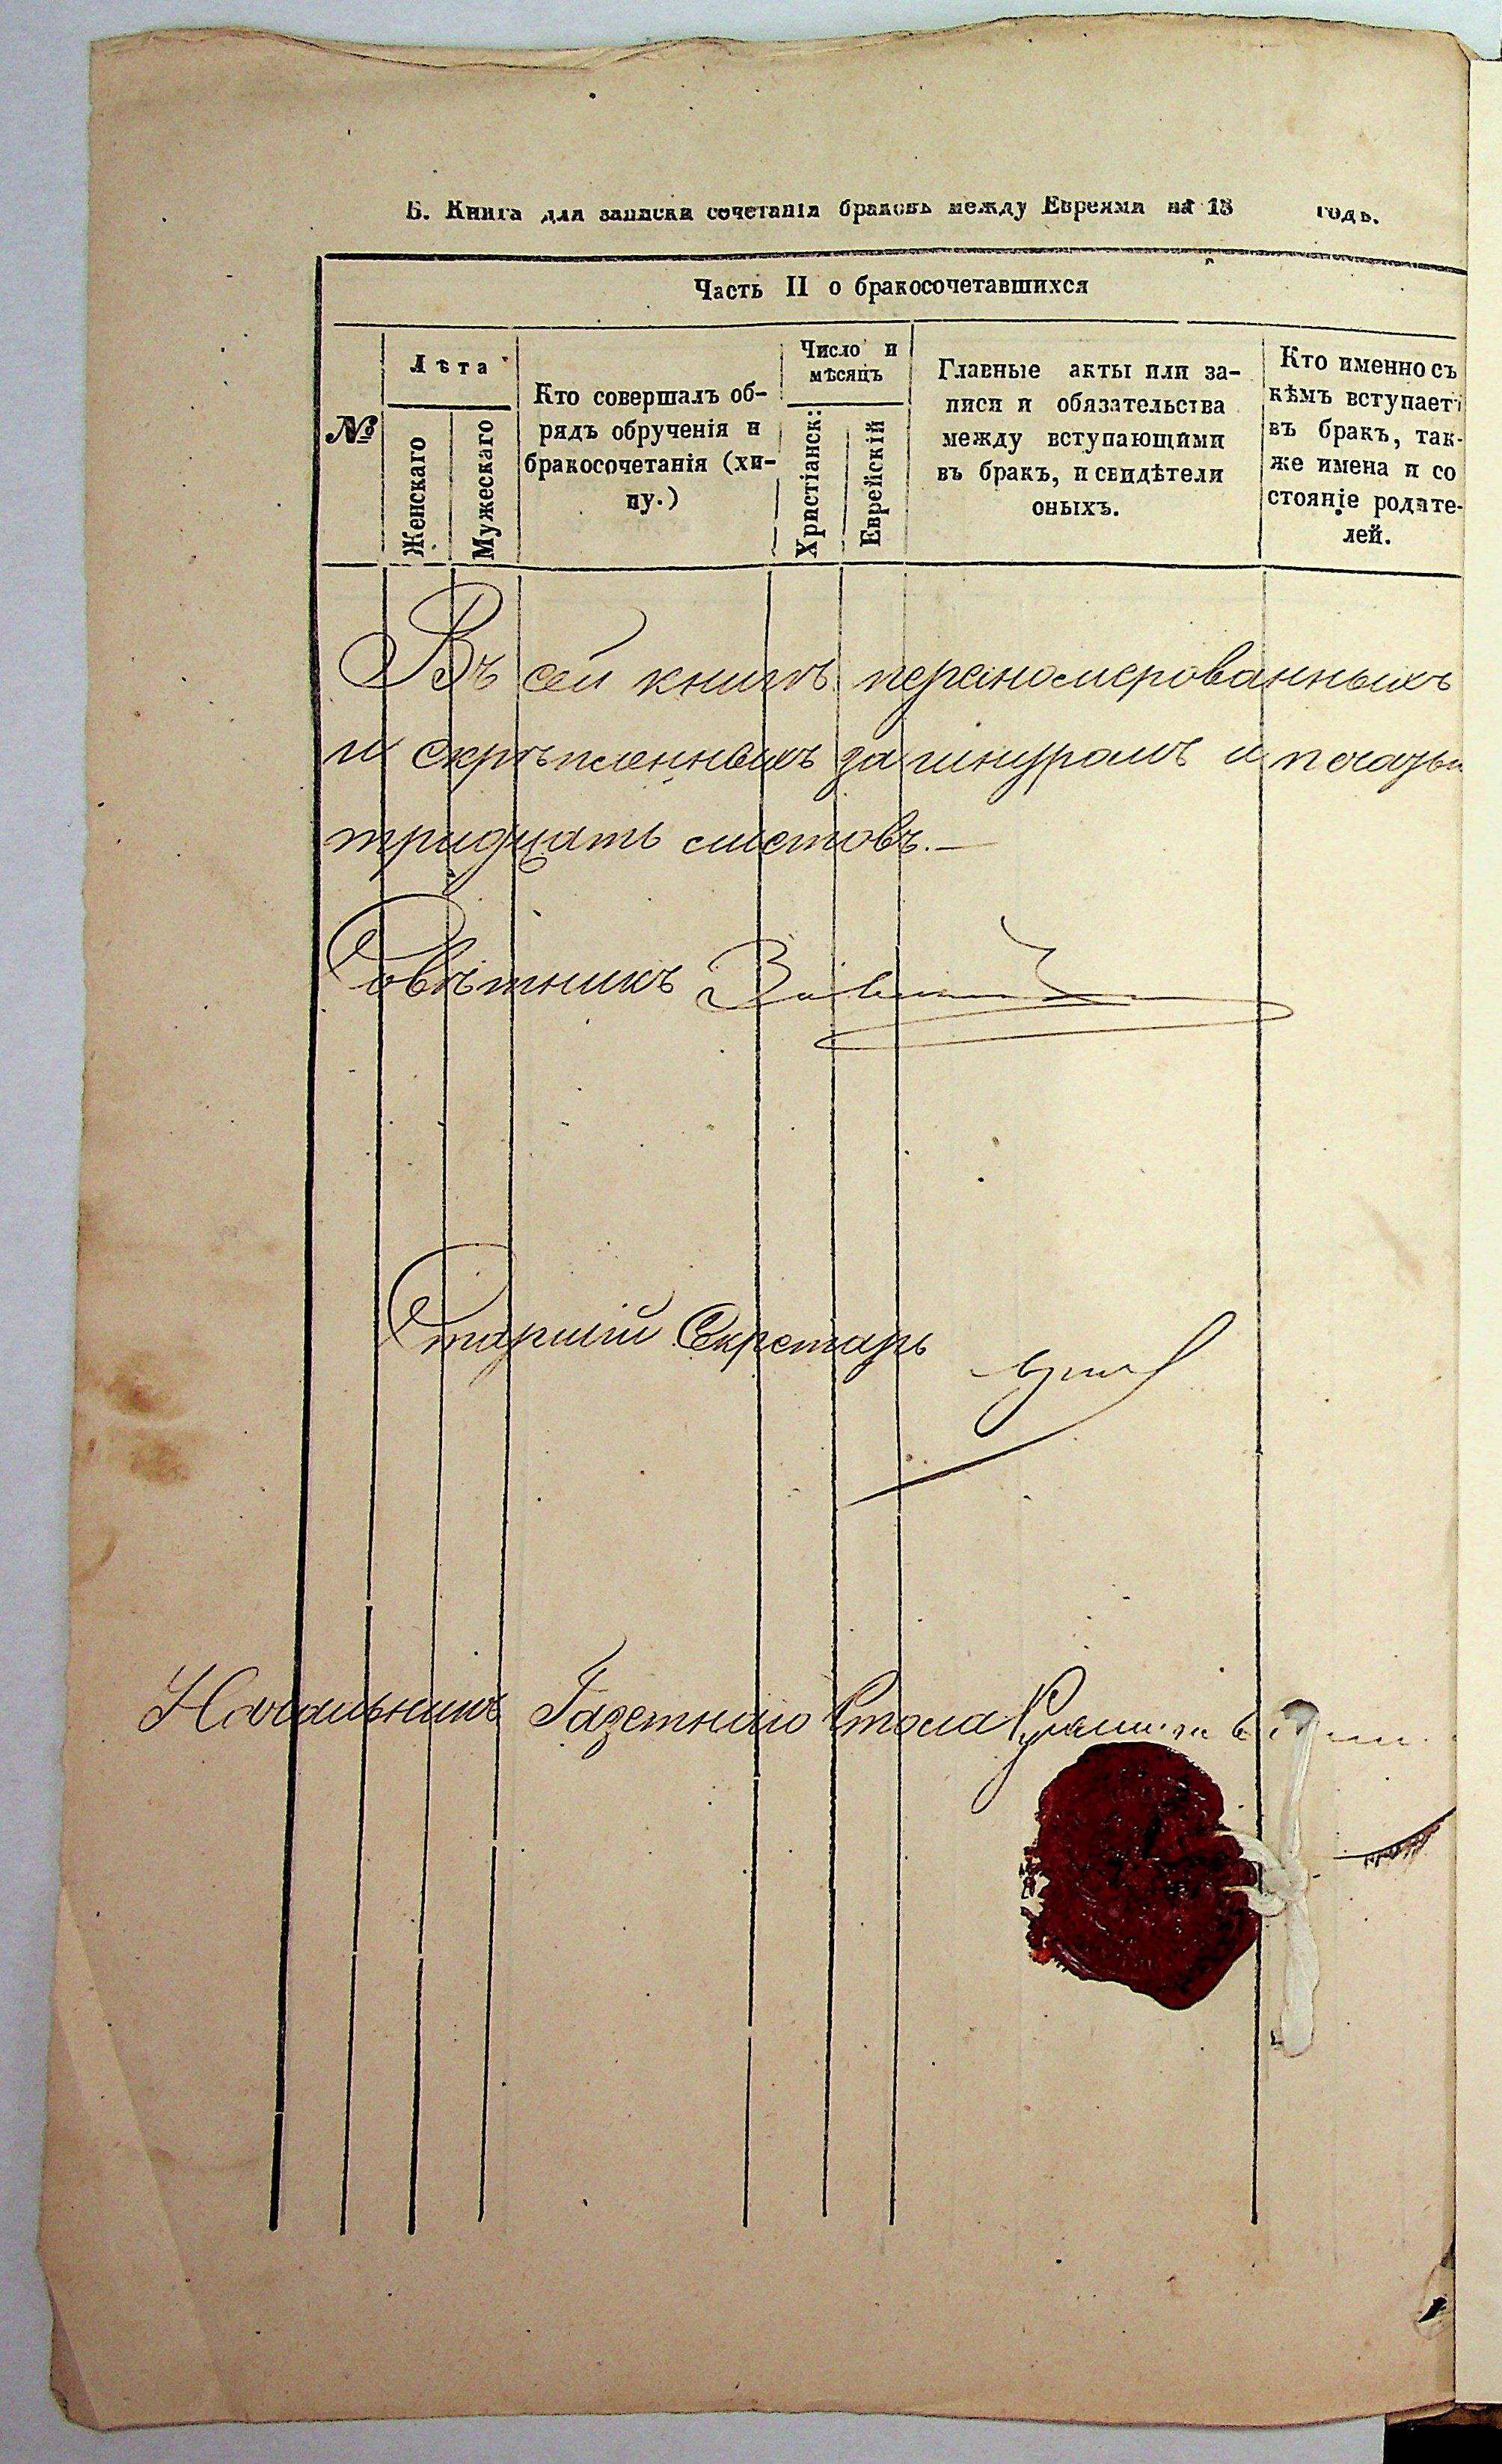 Б. Книга для записки сочетанія браковъ между Евреями на 18 годъ.
Часть II о бракосочетавшихся
№
Лѣта
Женскаго
Мужескаго
Кто совершалъ об-
рядъ обрученія и
бракосочетанія (хи-
пу.)
Число и
мѣсяцъ
Христіанск:
Еврейскій
Главные акты или за-
писи и обязательства
между вступающими
въ бракъ, и свидѣтели
оныхъ.
Кто именно съ
кѣмъ вступаетъ
въ бракъ, так-
же имена и со
стояніе родите-
лей.
Въ сей книгѣ переномерованныхъ
и скрѣпленныхъ за шнуромъ и печатью
тридцать листовъ.—
Совѣтникъ
Старшій Секретарь
Начальникъ Газетнаго Стола